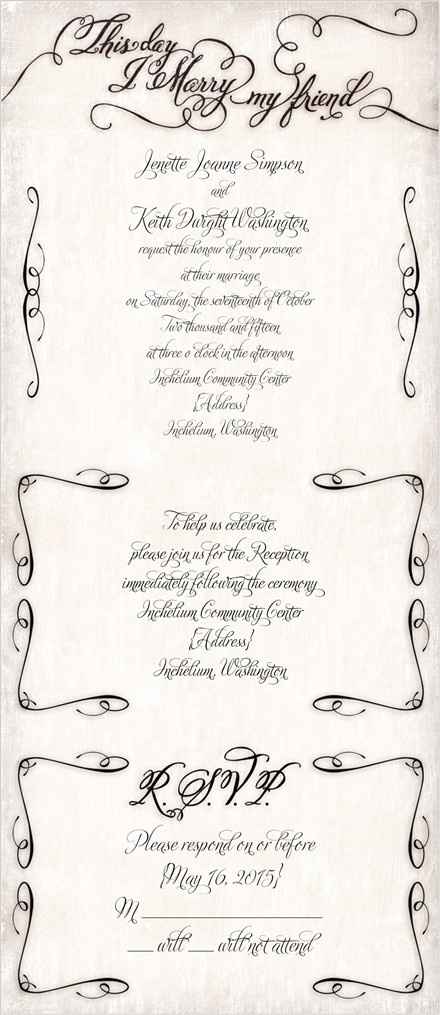 This day
I Marry my friend
Jenette Joanne Simpson
and
Keith Dwight Washington
request the honour of your presence
at their marriage
on Saturday, the seventeenth of October
Two thousand and fifteen
at three o'clock in the afternoon
Inchelium Community Center
[Address]
Inchelium, Washington
To help us celebrate,
please join us for the Reception
immediately following the ceremony
Inchelium Community Center
[Address]
Inchelium, Washington
R.S.V.P.
Please respond on or before
[May 16, 2015]
M
___ will ___ will not attend